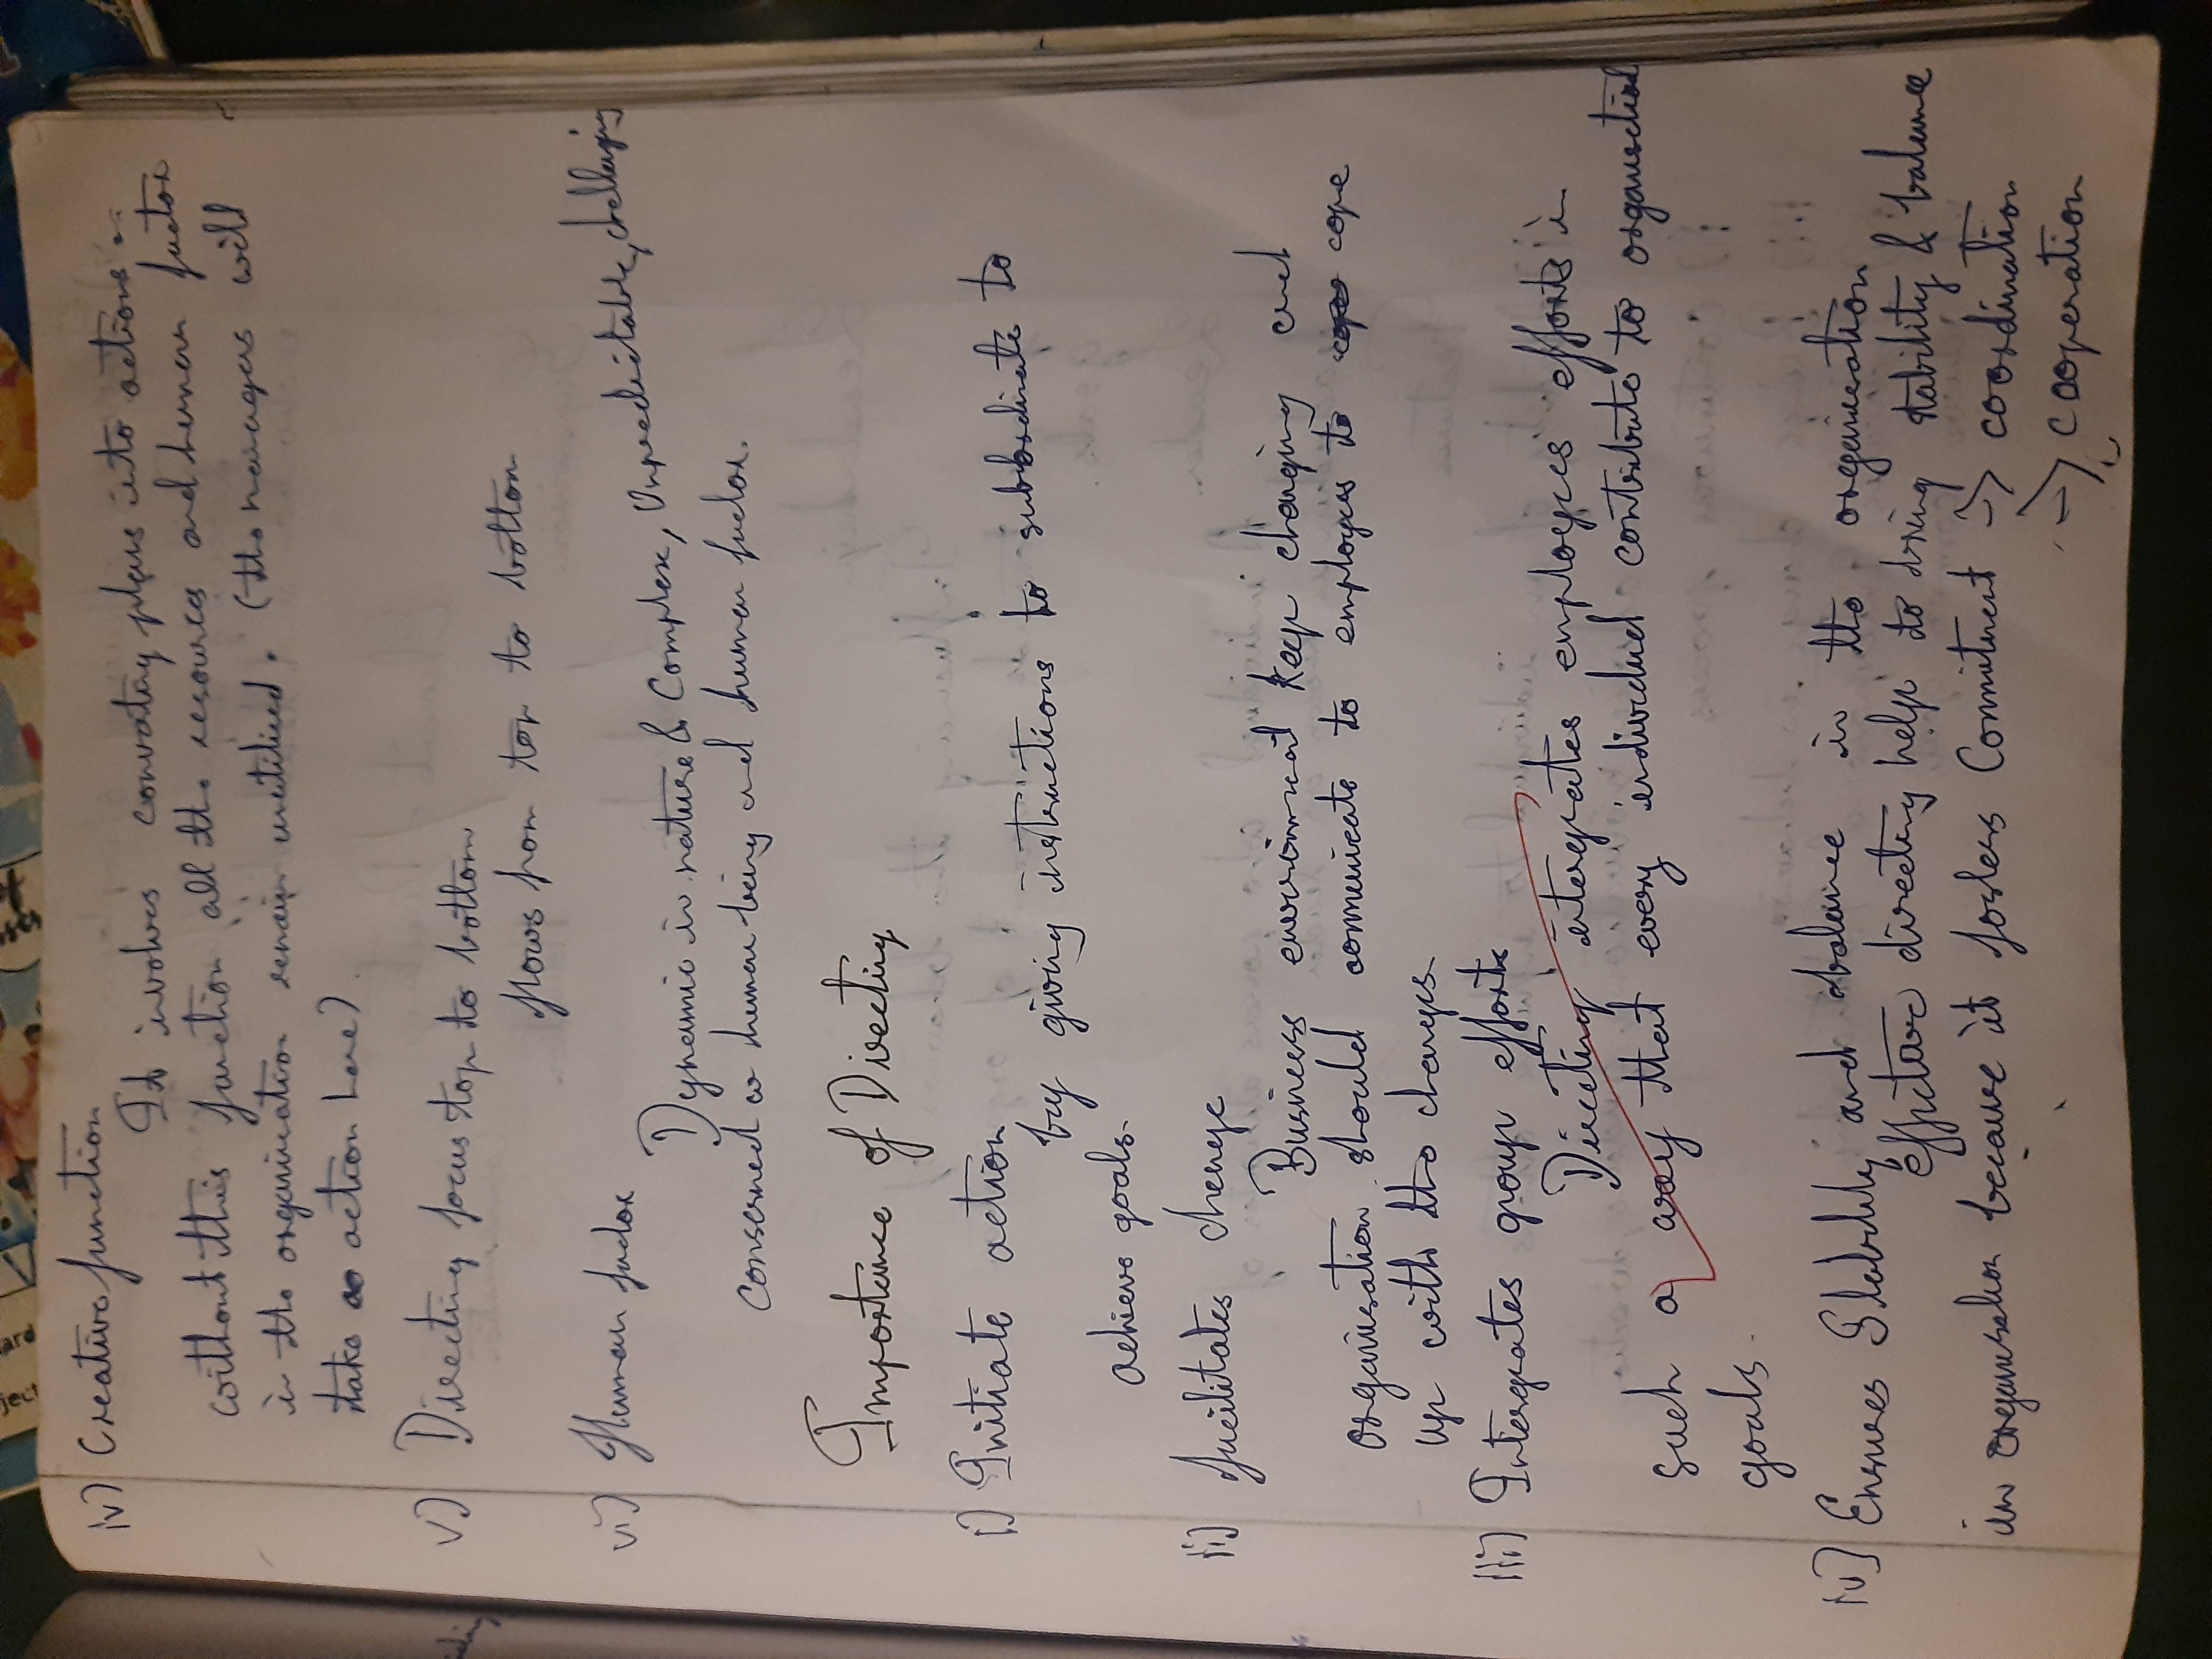 iv) Creative function
It involves convating plans into actions
without this function all the resources and human factor
in the organisation remain unutilised. (the managers will
take no action here)
v) Directing focus top to bottom
flows from top to bottom
vi) Human factor
Dynamic in nature & Complex, Unpredictable, challenging
Conserned w human being and human factor.
Importance of Directing
i) Initiate action
by giving instructions to subordinate to
achieve goals.
ii) facilitates change
Business enviornment keep changing and
organisation should communicate to employees to cope
up with the changes.
iii) Intergrates group efforts
Directing intergrates employees efforts in
such a way that every individual contribute to organisational
goals.
iv) Ensures Stability and balance in the organisation
Effective directing help to bring stability & balance
in organisation because it fosters Commitment → coordination
→ cooperation